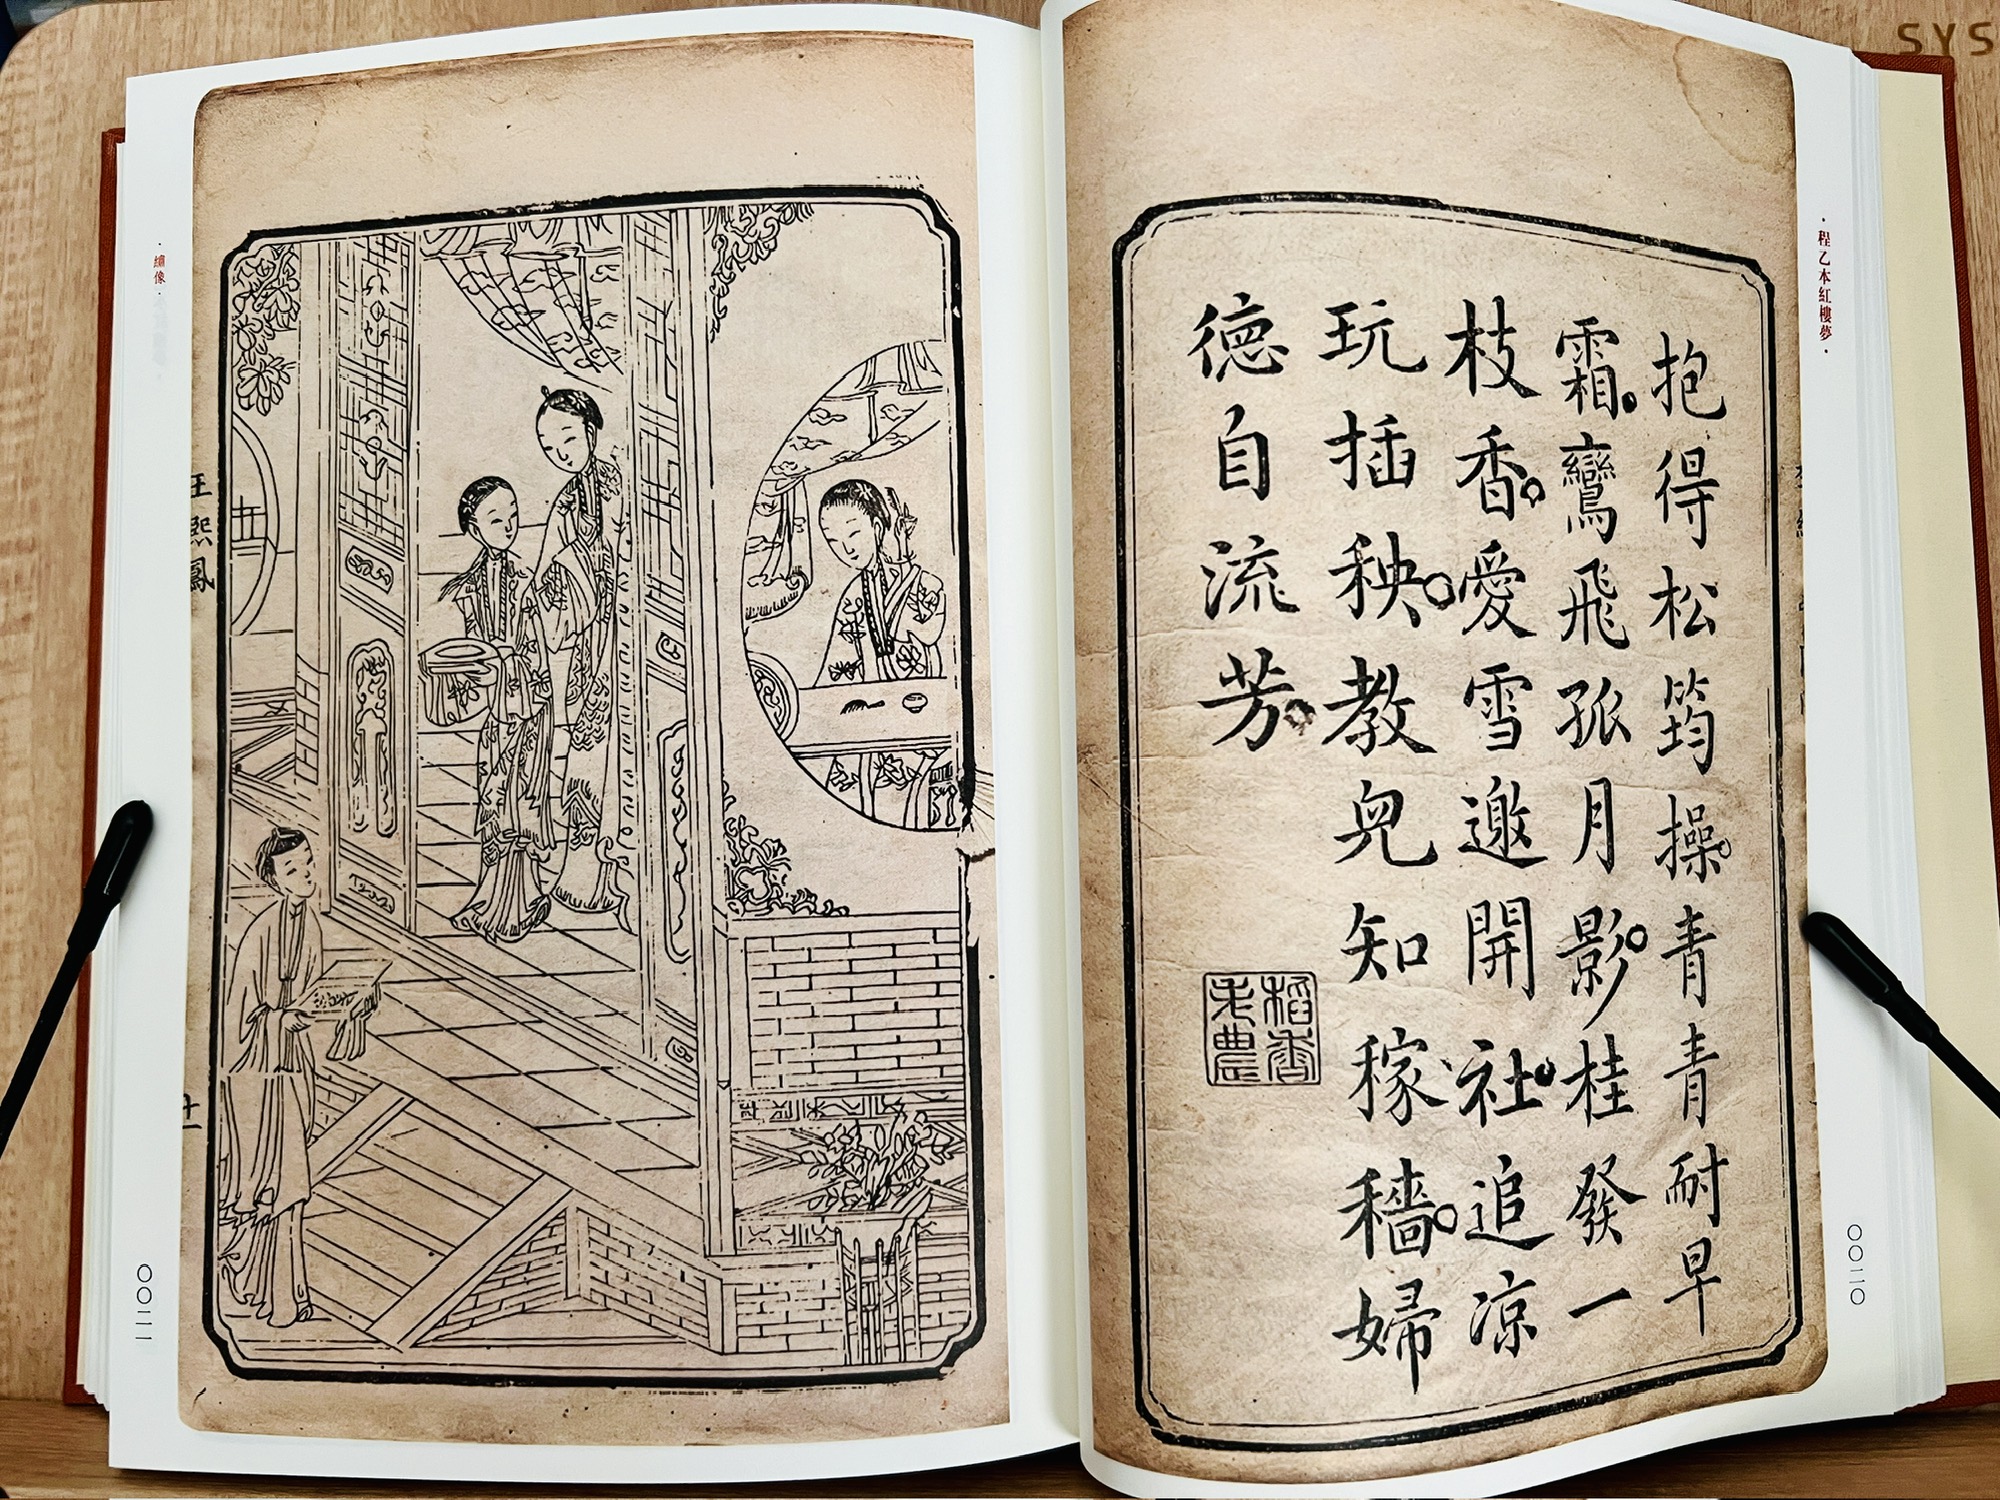 ·程乙本紅樓夢·
抱得松筠操青青耐早
霜鸞飛孤月影桂發一
枝香愛雪邀開社追涼
玩插秧教兒知稼穡婦
德自流芳
稻香
老農
〇〇二〇
·繡像·
王熙鳳
〇〇二一
SYS